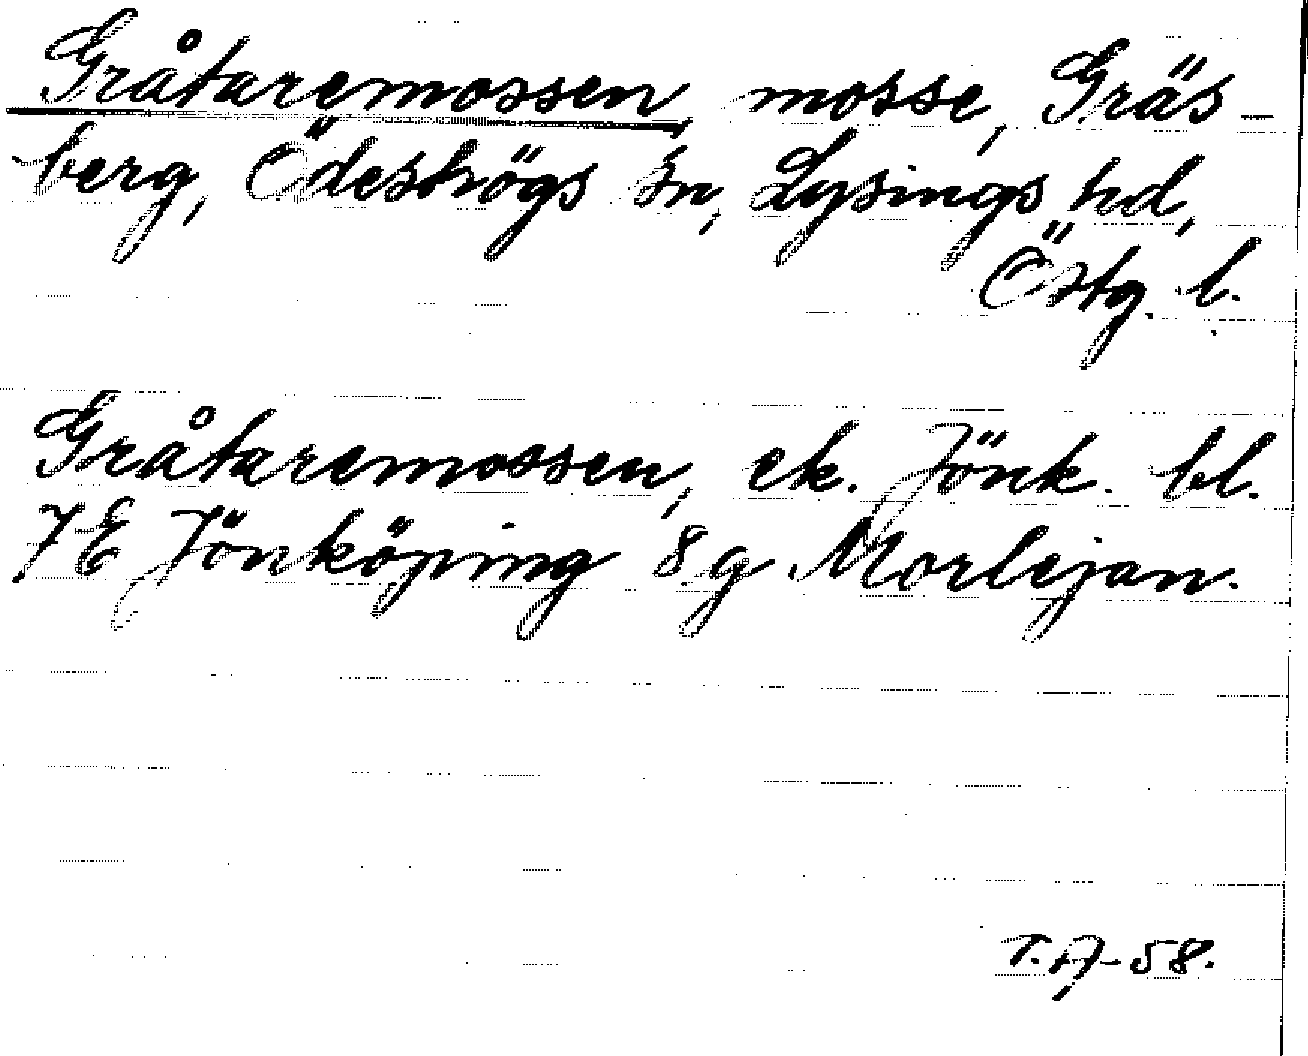 Gråtaremossen, mosse, Gräs-
berg, Ödeshögs sn, Lysings hd,
Östg. l.
Gråtaremossen, ek. Jönk. bl.
7E Jönköping 8g Morlejan.
T.A-58.